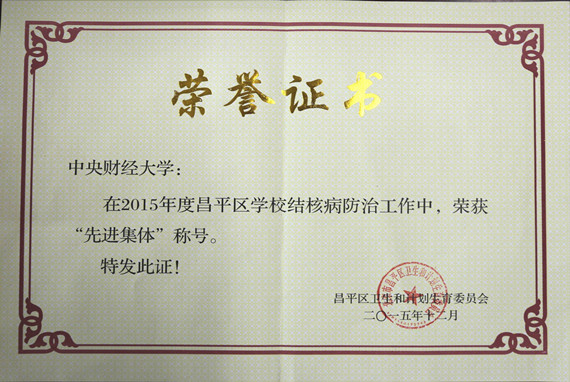 荣誉证书
中央财经大学：
在2015年度昌平区学校结核病防治工作中，荣获
“先进集体”称号。
特发此证！
昌平区卫生和计划生育委员会
二〇一五年十二月